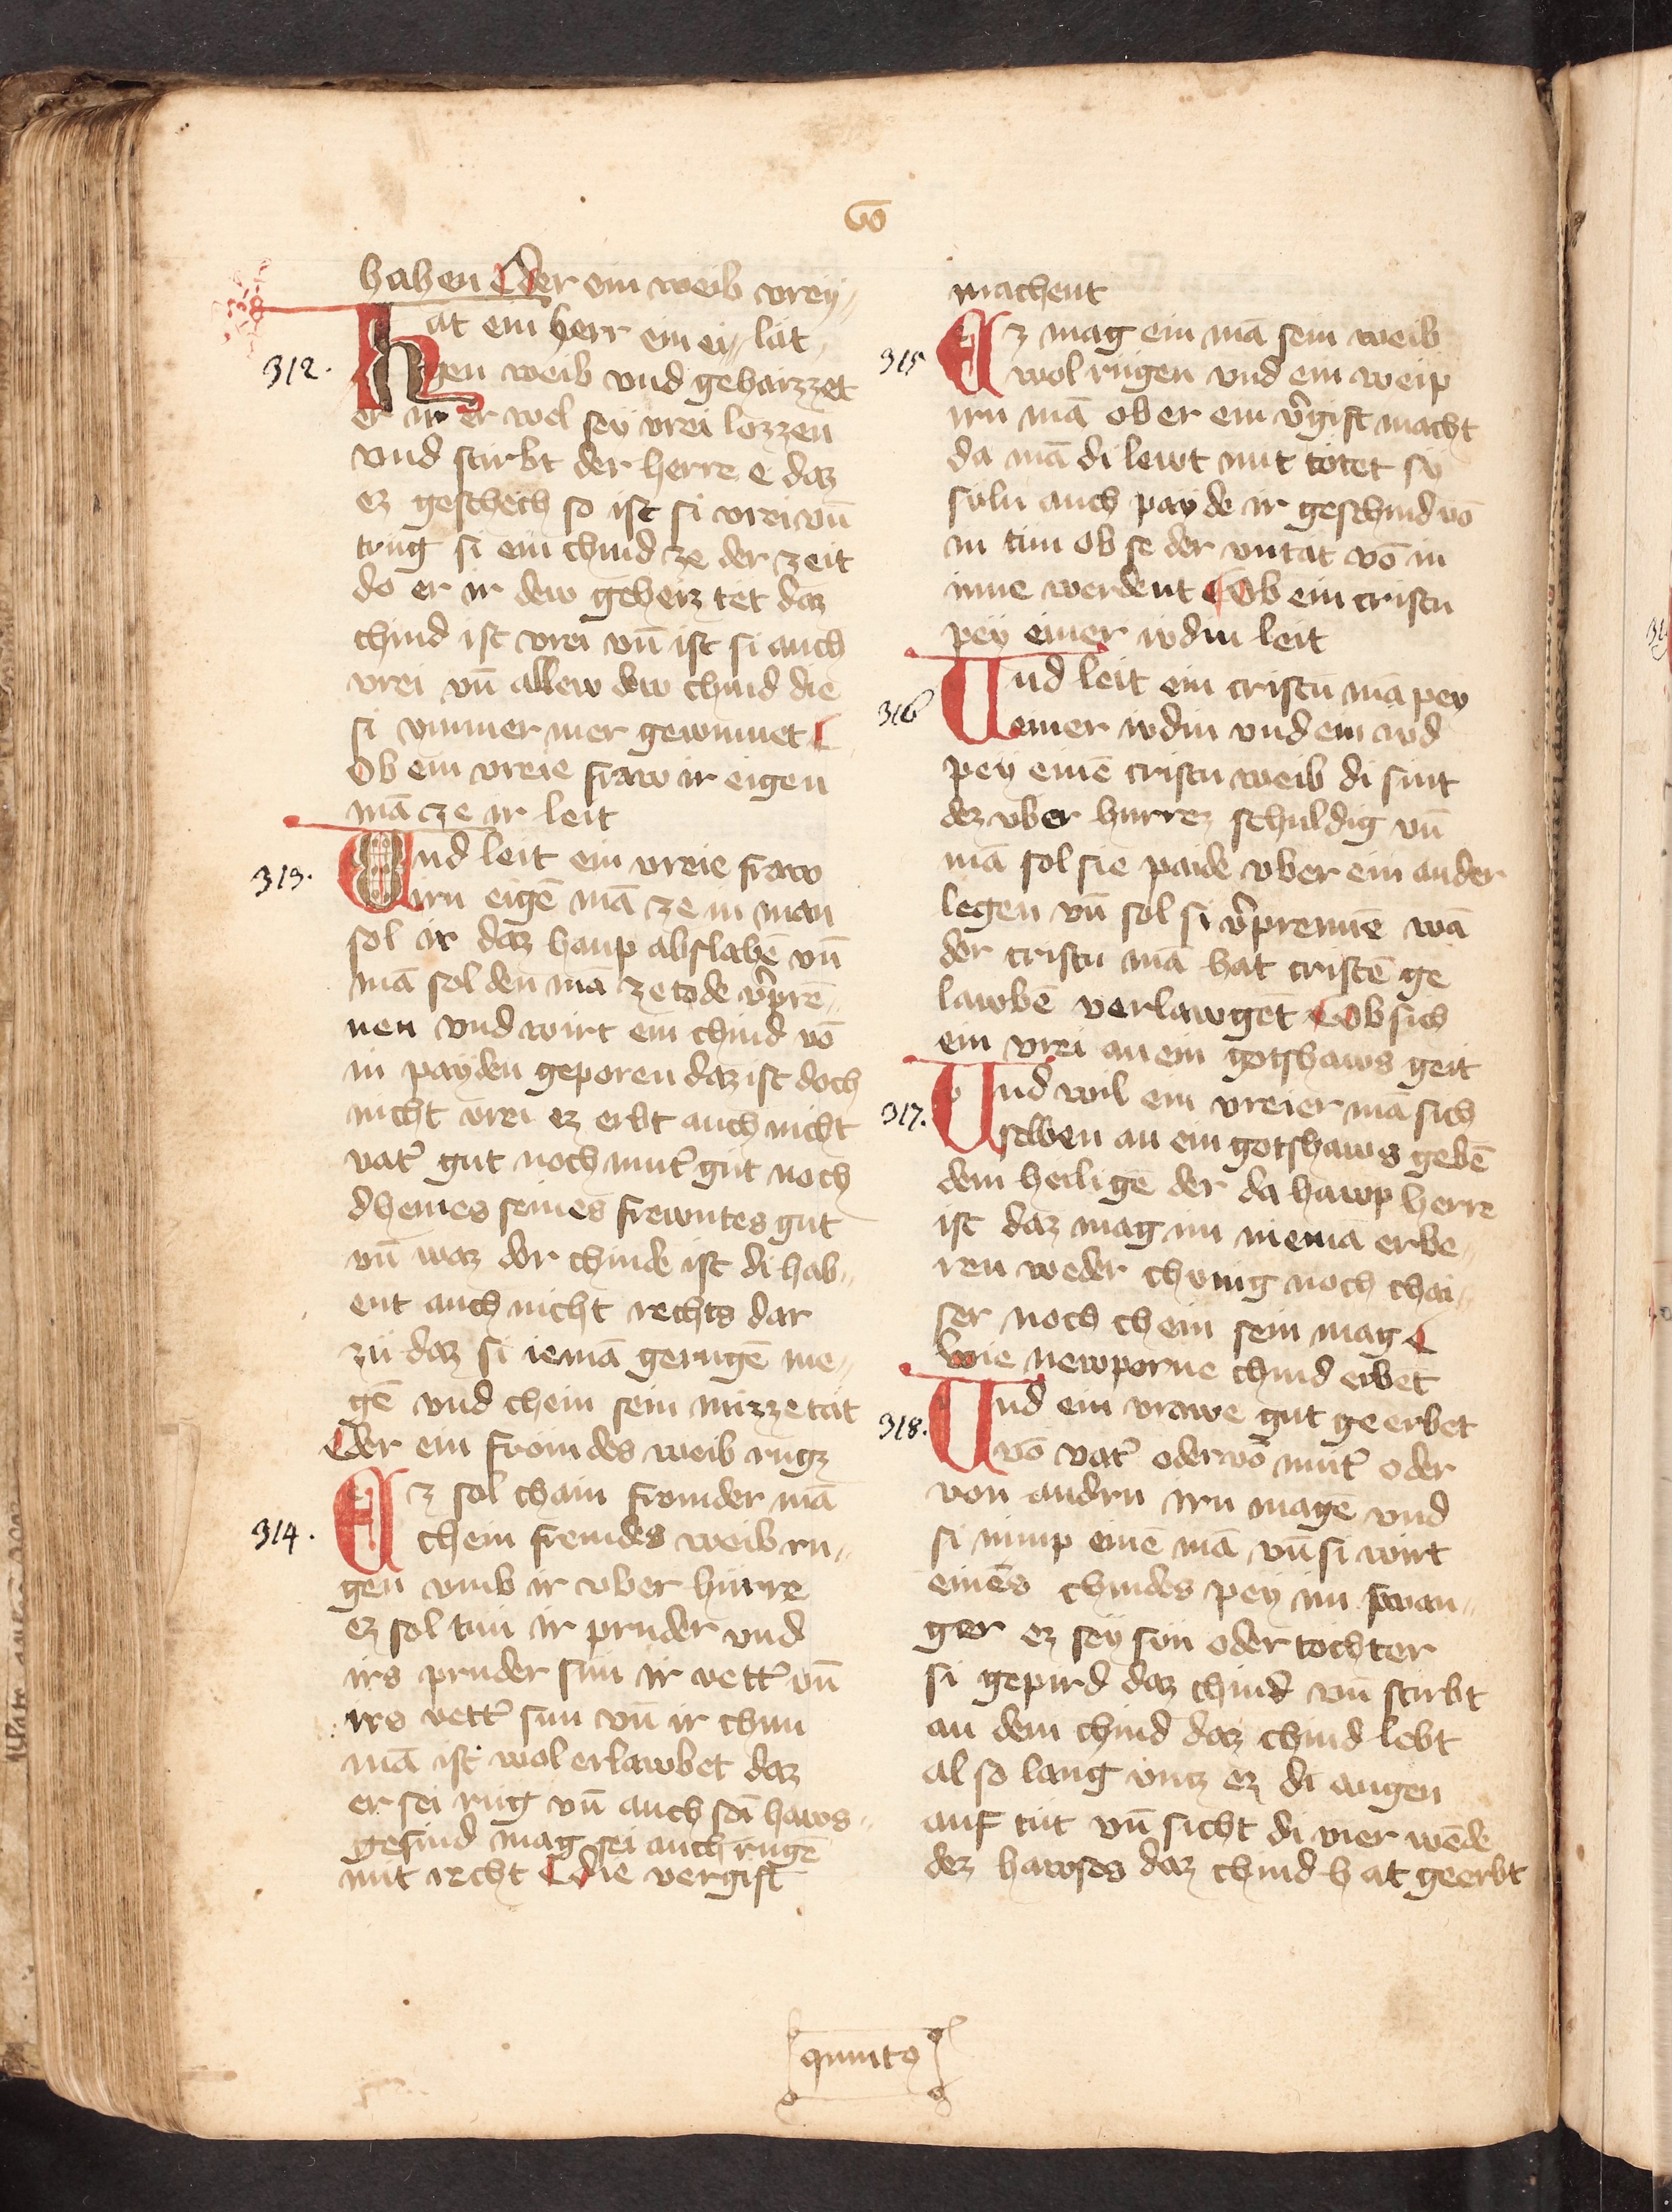 haben Der ein weib vrey„
lat„
312.
Hat ein herr ein ei„
gen weib vnd gehaizzet
er ir er wel sey vrei lozzen
vnd stirbt der herre e daz
ez geschech so ist si vrei vn̄
trug si ein chind ze der zeit
do er ir dew geheiz tet daz
chind ist vrei vn̄ ist si auch
vrei vn̄ allew dew chind die
si ymmer mer gewinnet
Ob ein vreie fraw ir eigen
mā cze ir leit
313.
Und leit ein vreie fraw
irn eigē mā ze in man
sol ir daz haup abslahē vn̄
mā sol den mā ze tode v̓prē„
nen vnd wirt ein chind vō
in payden geporen daz ist doch
nicht vrei ez erbt auch nicht
vat̓ gut noch mut̓ gut noch
dheines seines frewntes gut
vn̄ waz der chinde ist di hab„
ent auch nicht rechts dar
zu daz si iemā gerugē me„
gē vnd chein sein mizzetat
Der ein fromdes weib rugz
314.
Ez sol chain fromder mā
chein fremdes weib ru„
gen vmb ir vber hurre
ez sol tun ir pruder vnd
irs pruder sun ir vett̓ vn̄
irs vett̓ sun vn̄ ir chun
mā ist wol erlawbet daz
er sei rug vn̄ auch sei haws„
gesind mag sei auch rugē
mit recht Die vergift
machent
315
Ez mag ein mā sein weib
wol rugen vnd ein weip
irn mā ob er ein v̓gift macht
da mā di lewt mit totet so
suln auch payde ir geschind vō
in tun ob se der vntat vō in
inne werdent Ob ein cristn
pey einer iudin leit
316
Und leit ein cristn mā pey
einer iudin vnd ein iud
pey einē cristn weib di sint
dez vber hurrez schuldig vn̄
mā sol sie paide vber ein ander
legen vn̄ sol si v̓prennē wā
der cristn mā hat cristē ge
lawbē verlawgēt Ob sich
ein vrei an ein gotshaws geit
317.
Und wil ein vreier mā sich
selben an ein gotshaws gebē
dem heiligē der da hawp herre
ist daz mag im niemā erbe„
ren weder chunig noch chai„
ser noch chein sein mag
Wie newporne chind erbēt
318.
Und ein vrawe gut geerbet
vō vat̓ oder vō mut̓ oder
von andrn irn magē vnd
si nimp einē mā vn̄ si wirt
einēs chindes pey im swan„
ger ez sey sun oder tochter
si gepird daz chind vn̄ stirbt
an dem chind daz chind lebt
al so lang vntz ez di augen
auf tut vn̄ sicht di vier wēde
dez hawses daz chind hat geerbt
quinto